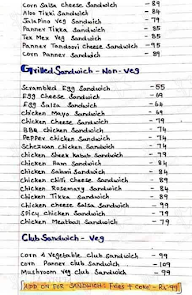 Corn Salsa Cheese Sandwich - 89
Aloo Tikki Sandwich - 84
Jalapino Veg Sandwich - 79
Panner Tikka Sandwich - 85
Tex Mex Veg Sandwich - 85
Panner Tandoori Cheese Sandwich - 95
Corn Panner Sandwich - 89
Grilled Sandwich - Non-Veg
Scrambled Egg Sandwich - 55
Egg Cheese Sandwich - 69
Egg Salsa Sandwich - 64
Chicken Mayo Sandwich - 69
Chicken Cheese Sandwich - 79
BBQ Chicken Sandwich - 74
Pepper Chicken Sandwich - 74
Schezwan Chicken Sandwich - 74
Chicken Shek Kabab Sandwich - 79
Chicken Ham Sandwich - 84
Chicken Salami Sandwich - 84
Chicken Chilli Cheese Sandwich - 89
Chicken Rosemary Sandwich - 84
Chicken Tikka Sandwich - 89
Chicken Cheese Salsa Sandwich - 99
Spicy Chicken Sandwich - 79
Chicken Meatball Sandwich - 79
Club Sandwich - Veg
Corn & Vegetable Club Sandwich - 99
Corn Panner Club Sandwich - 109
Mushroom Veg Club Sandwich - 99
ADD ON FOR SANDWICH: Fries + Coke - Rs.99